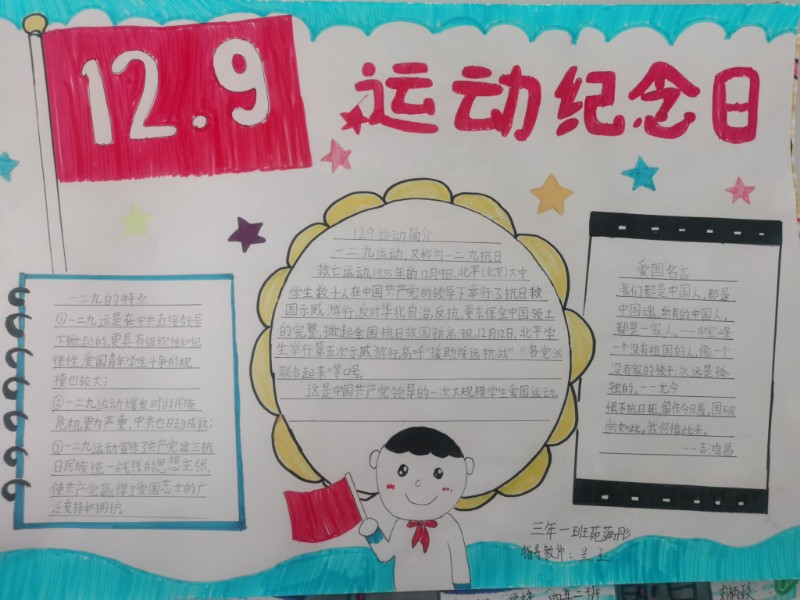 12.9
运动纪念日
一二九的特点:
①一二九运是在中共直接领导
下掀起的,更具有组织性和纪
律性,爱国青年学生斗争的规
模也较大;
②一二九运动爆发时的民族
危机更为严重,中共也日趋成熟;
③一二九运动宣传了共产党建立抗
日民族统一战线的思想主张,
使共产党赢得了爱国志士的广
泛支持和拥护。
129运动简介
一二九运动,又称为一二九抗日
救亡运动,1935年的12月9日,北平(北京)大中
学生数十人在中国共产党的领导下举行了抗日救
国示威游行,反对华北自治,反抗,要求保全中国领土
的完整,掀起全国抗日救国新高
12月12日,北平学
生举行第五次示威游行,高呼"援助绥远抗战""各党派
联合起来"等口号。
这是中国共产党领导的一次大规模学生爱国运动。
爱国名言
我们都是中国人,都是
中国魂,所有的中国人,
都是一家人。
一个没有祖国的人,像一个
没有家的孩子,永远是孤
独的。
恨不抗日死,留作今日羞。国破
尚如此,我何惜此头。
--吉鸿昌
三年一班
指导教师:兰玉